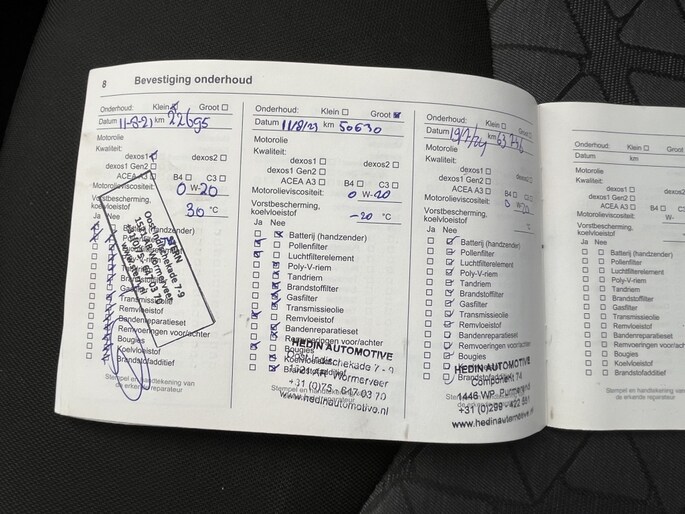 8 Bevestiging onderhoud
Onderhoud: Klein Groot
Datum 11-8-21 km 22695
Motorolie
Kwaliteit:
dexos1 dexos2
dexos1 Gen2
ACEA A3 B4 C3
Motorolieviscositeit: 0 W-20
Vorstbescherming,
koelvloeistof 30 °C
Ja Nee
Batterij (handzender)
Transmissieolie
Remvloeistof
Bandenreparatieset
Remvoeringen voor/achter
Bougies
Koelvloeistof
Brandstofadditief
Stempel en handtekening van
de erkende reparateur
Onderhoud: Klein Groot
Datum 11/8/23 km 50630
Motorolie
Kwaliteit:
dexos1 dexos2
dexos1 Gen2
ACEA A3 B4 C3
Motorolieviscositeit: 0 W-20
Vorstbescherming,
koelvloeistof -20 °C
Ja Nee
Batterij (handzender)
Pollenfilter
Luchtfilterelement
Poly-V-riem
Tandriem
Brandstoffilter
Gasfilter
Transmissieolie
Remvloeistof
Bandenreparatieset
Remvoeringen voor/achter
Bougies
HEDIN AUTOMOTIVE
Koelvloeistof
Brandstofadditief
1521 AR Wormerveer
+31 (0)75 - 647 03 70
www.hedinautomotive.nl
Onderhoud: Klein Groot
Datum 19/7/24 km 63746
Motorolie
Kwaliteit:
dexos1 dexos2
dexos1 Gen2
ACEA A3 B4 C3
Motorolieviscositeit: 0 W-20
Vorstbescherming,
koelvloeistof °C
Ja Nee
Batterij (handzender)
Pollenfilter
Luchtfilterelement
Poly-V-riem
Tandriem
Brandstoffilter
Gasfilter
Transmissieolie
Remvloeistof
Bandenreparatieset
Remvoeringen voor/achter
Bougies
HEDIN AUTOMOTIVE
Koelvloeistof
Brandstofadditief
Component 74
1446 WP Purmerend
www.hedinautomotive.nl
Onderhoud: Klein
Datum km
Motorolie
Kwaliteit:
dexos1
dexos1 Gen2
ACEA A3
Motorolieviscositeit:
Vorstbescherming,
koelvloeistof
Ja Nee
Batterij (handzender)
Pollenfilter
Luchtfilterelement
Poly-V-riem
Tandriem
Brandstoffilter
Gasfilter
Transmissieolie
Remvloeistof
Bandenreparatieset
Remvoeringen voor/achter
Bougies
Koelvloeistof
Brandstofadditief
Stempel en handtekening van
de erkende reparateur